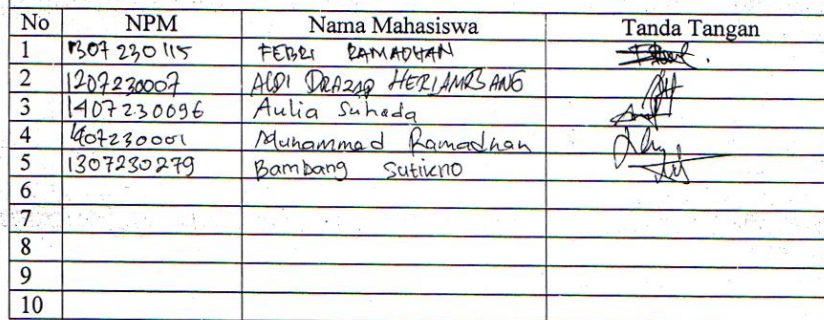 No NPM Nama Mahasiswa Tanda Tangan
1 1307230115 FEBRI RAMADHAN
2 1207230007 HERIAMBANG
3 1407230096 Aulia Suhada
4 1407230001 Muhammad Ramadhan
5 1307230279 Bambang Sutikno
6
7
8
9
10